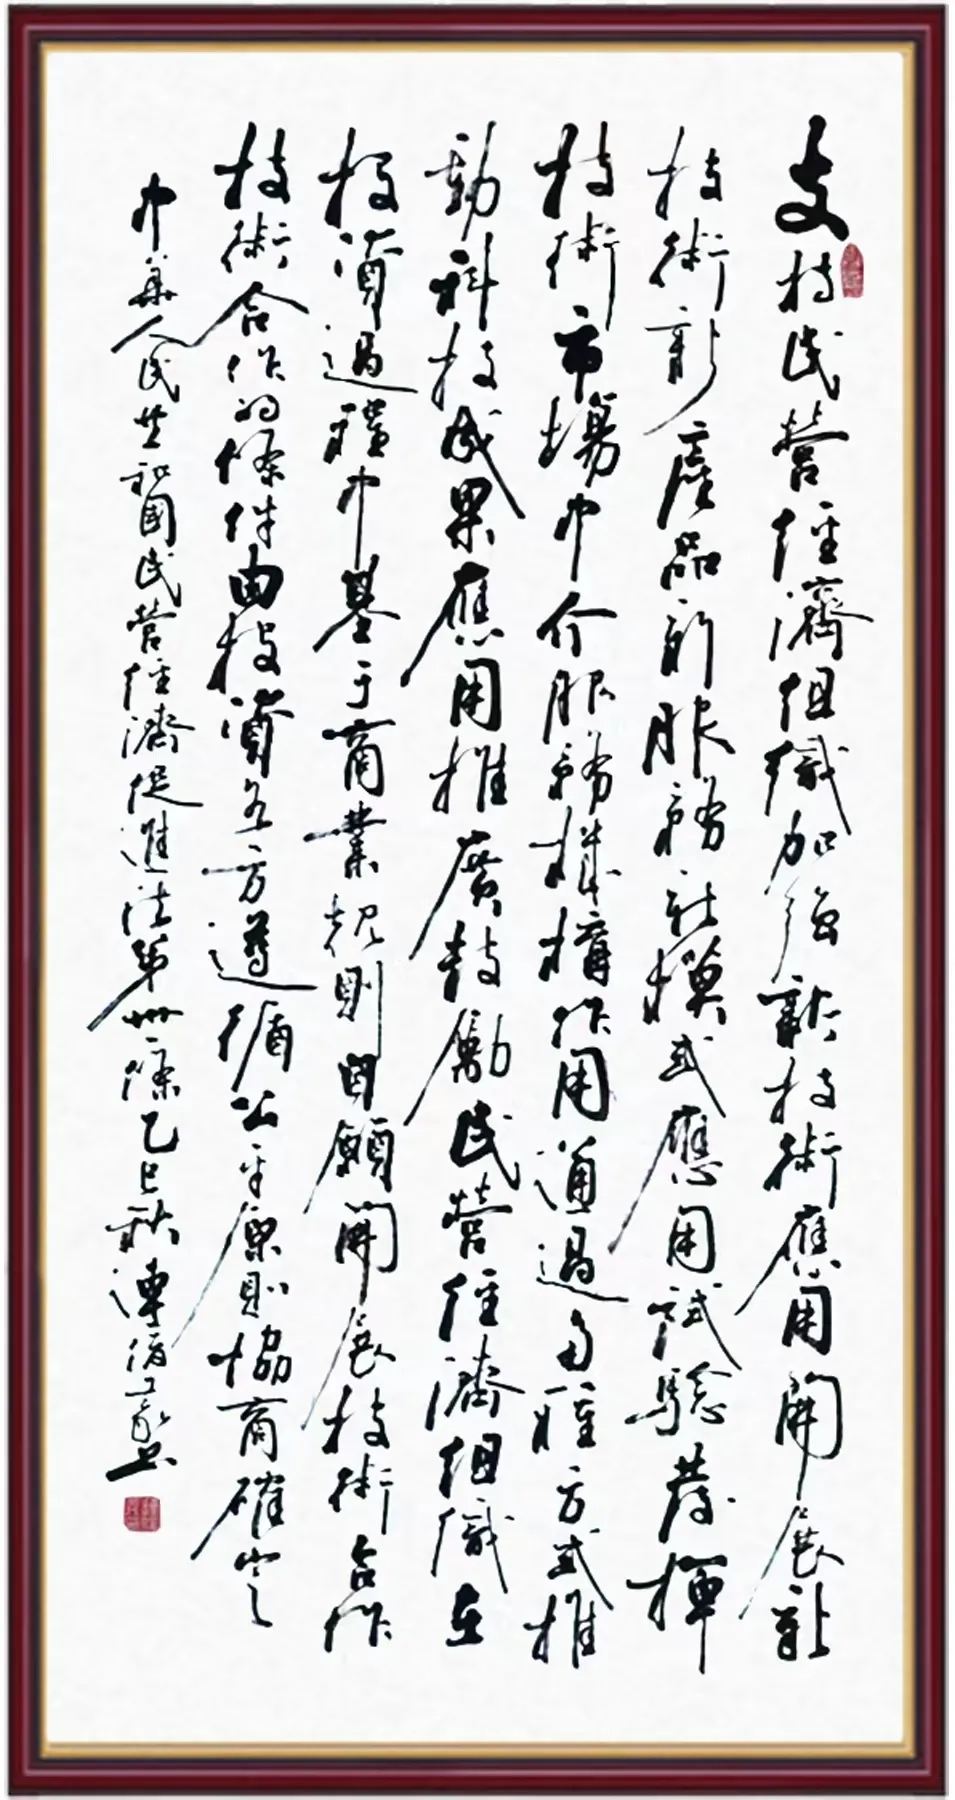 支持民營經濟組織加強新技術應用開展新
技術新產品新服務新模式應用試驗發揮
技術市場中介服務機構作用通過多種方式推
動科技成果應用推廣鼓勵民營經濟組織在
投資過程中基于商業規則自願開展技術合作
技術合作的條件由投資各方遵循公平原則協商確定
中華人民共和國民營經濟促進法第卅條乙巳秋